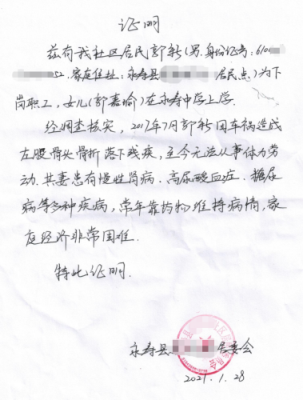 证明
兹有我社区居民郭新(男,身份证号:610
52,家庭住址:永寿县 居民点)为下
岗职工,女儿(郭嘉愉)在永寿中学上学。
经调查核实,2017年7月郭新因车祸造成
左股骨头骨折落下残疾,至今无法从事体力劳
动.其妻患有慢性肾病、高尿酸血症、糖尿
病等多种疾病,常年靠药物维持病情,家
庭经济非常困难.
特此证明.
永寿县 居委会
2021.1.28